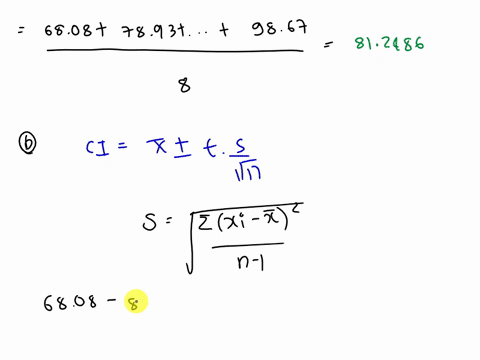 = 68.08 + 78.93 + ... + 98.67 / 8 = 81.2486
(b) CI = x̄ ± t · s/√n
S = √(Σ(xi - x̄)² / n-1)
68.08 - 8